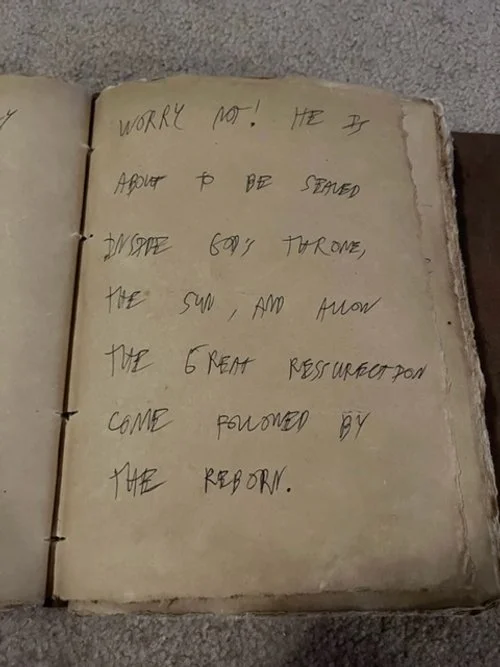 Y
WORRY NOT! HE IS
ABOUT TO BE SEALED
INSIDE GOD'S THRONE,
THE SUN, AND ALLOW
THE GREAT RESSURECTION
COME FOLLOWED BY
THE REBORN.